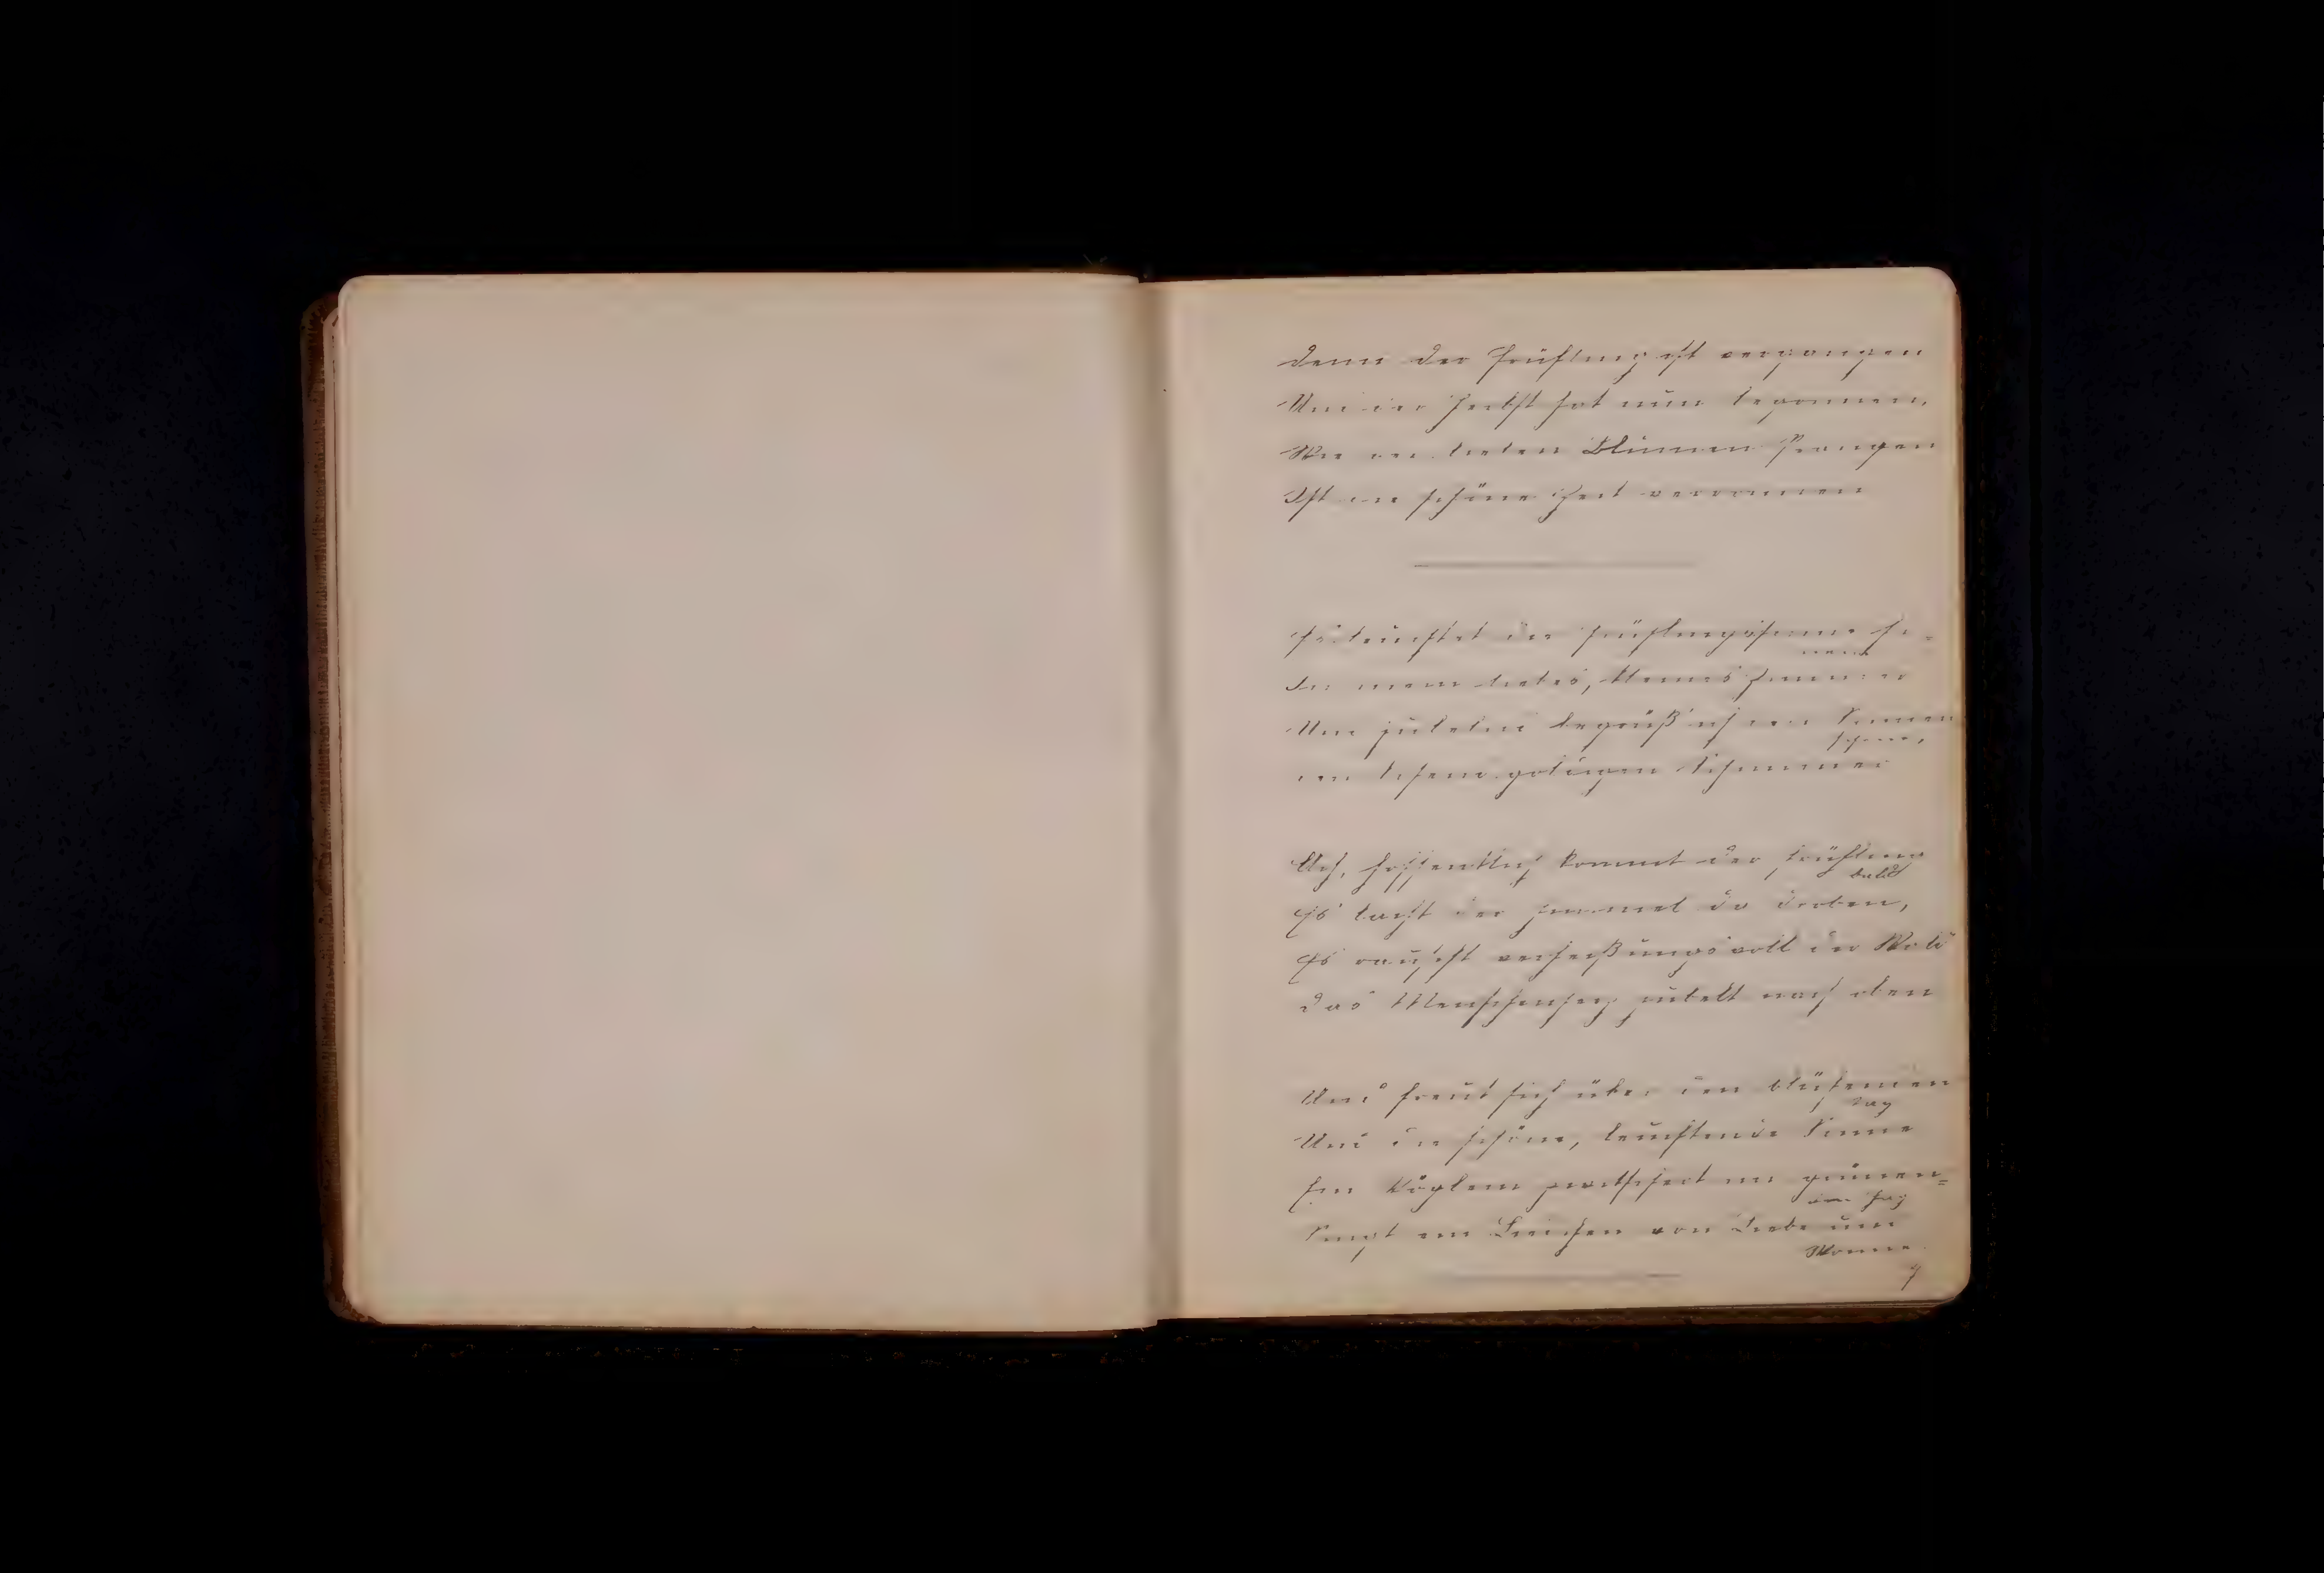 Denn der Frühling ist vergangen
Und der Herbst hat nun begonnen,
Wie der lieben Blumen Prangen
Ist die schöne Zeit verronnen
Es leuchtet die Frühlingssonne he-
rein
In mein liebes, kleines Zimmer
Und jubelnd begrüß' ich den Sonnen
schein,
den lichten goldigen Schimmer
Ach, hoffentlich kommt der Frühling
bald
Es lacht der Himmel da droben,
Es rauscht verheißungsvoll der Wald
Das Menschenherz jubelt nach oben
Und freut sich über den blühenden
Tag
Und die schöne, leuchtende Sonne
Ein Vöglein zwitschert im grünen-
den Hag
Singt ein Liedchen von Liebe und
Wonne.